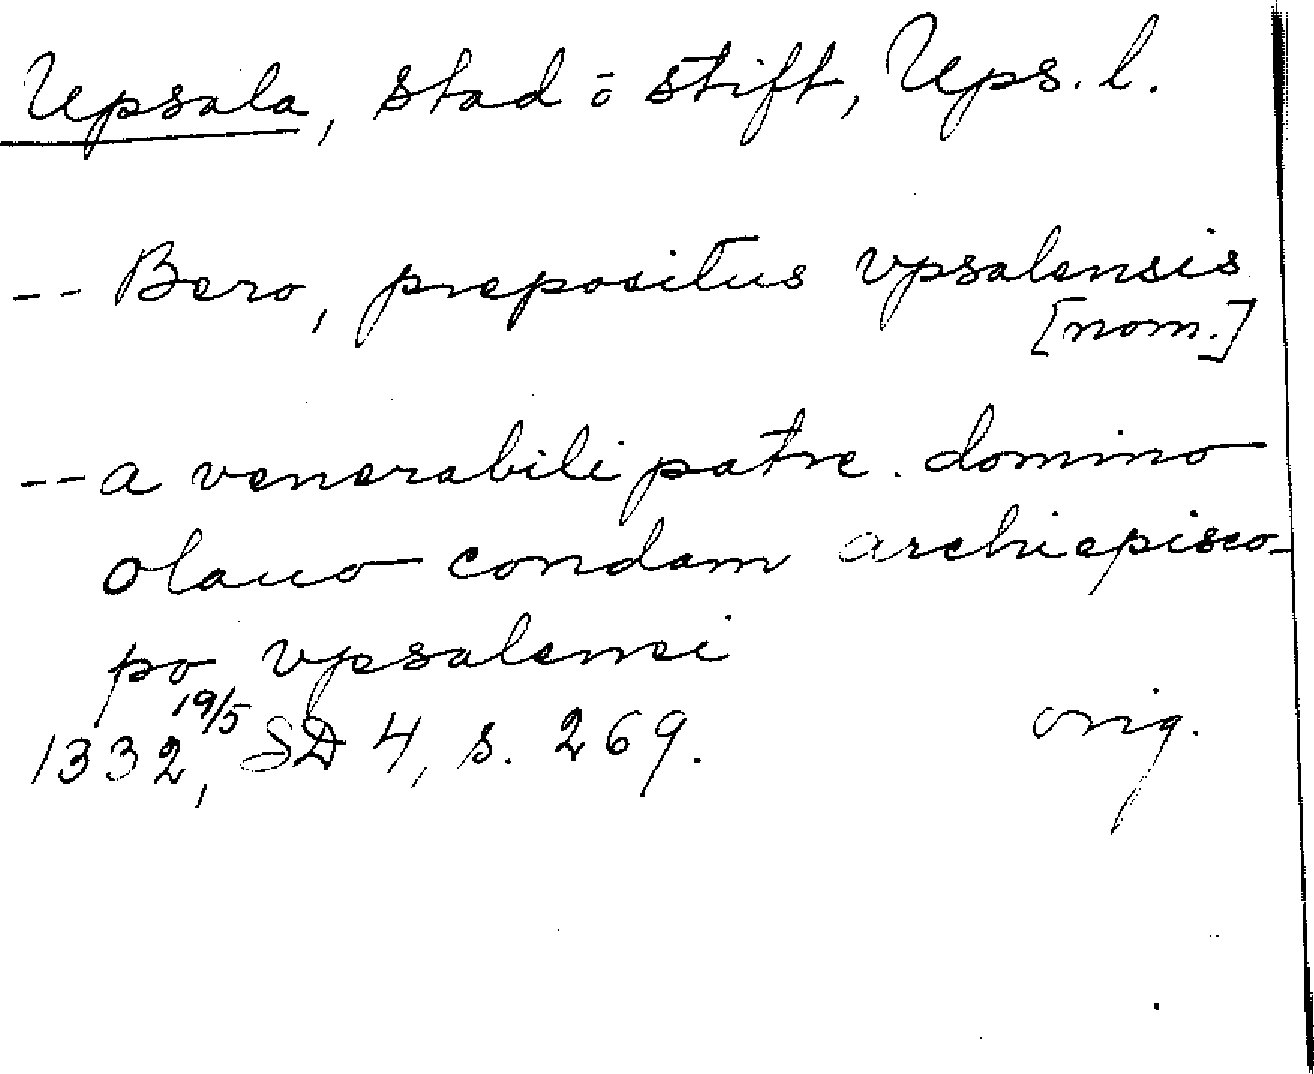 Upsala, stad o stift, Ups. l.
-- Bero, prepositus vpsalensis
[nom.]
-- a venerabili patre . domino
olauo condam archiepisco-
po vpsalensi
1332, 19/5 SD 4, s. 269. orig.